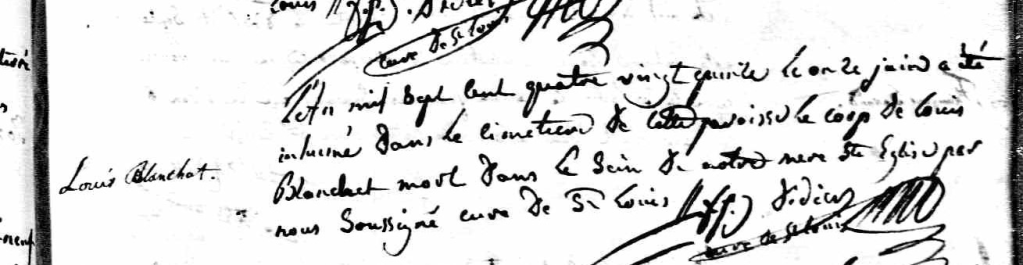 curé de St Louis
L'An mil sept cent quatre vingt quinze le onze juin a été
inhumé dans le cimetiere de cette paroisse le corp de louis
Blanchet mort dans le sein de notre mere Ste Eglise par
Louis Blanchat.
nous soussigné curé de St Louis
curé de St Louis